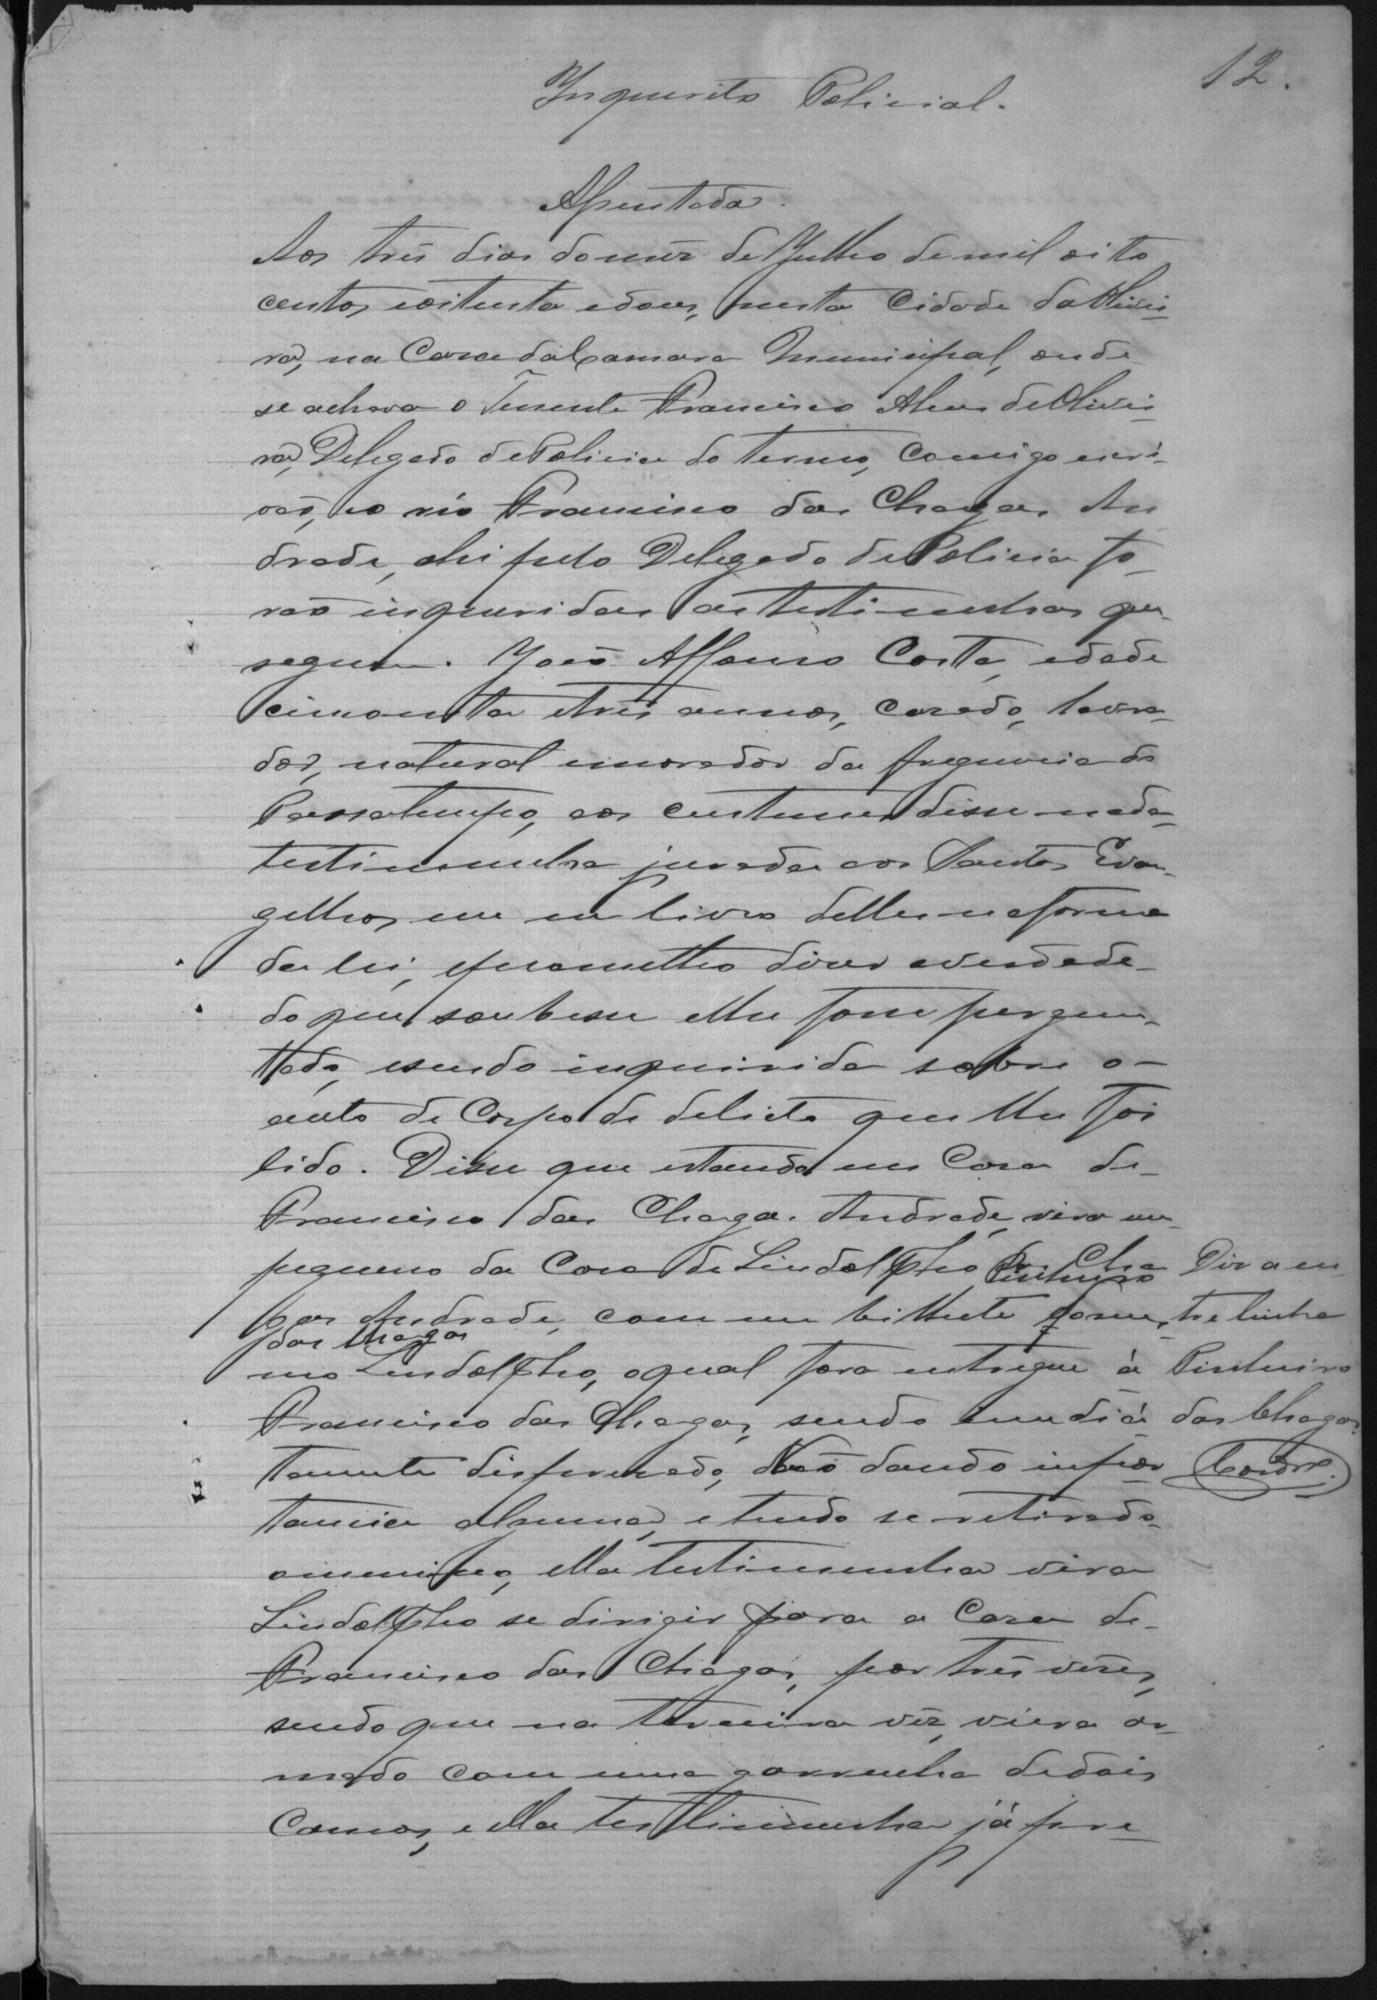 12.
Inquerito Policial.
Assentada.
Aos tres dias do mez de Julho de mil oito
centos eoitenta edous, nesta Cidade da Olivei-
ra, na Casa da Camara Municipal, onde
se achava o Tenente Francisco Alves de Olivei-
ra, Delegado de Policia do termo, comigo escri-
vão, e o réo Francisco das Chagas An
drade, ahi pelo Delegado de Policia fo-
rão inqueridas as testimunhas que
seguem. João Affonso Costa, edade
cincoenta etres annos, casado, lavra-
dor, natural emorador da freguesia do
Passatempo, aos custumes disse nada
testimunha jurada aos Santos Evan-
gelhos em um livro delles na forma
da lei, eprometteo diser averdade
do que soubesse elhe fosse pergun-
tado, esendo inquirida sobre o
auto de Corpo de delicto que lhe foi
lido. Disse que estando em Casa de
Francisco das Chagas Andrade, vira um
pequeno da Casa de Lindolpho Pinheiro Cha Digo en
gas Andrade, com um bilhete do mes- tre linha
das Chagas
mo Lindolpho, oqual fora entregue á Pinheiro
Francisco das Chagas, sendo immediá das Chagas
tamente despresado, não dando impor Condé.
tancia alguma, etendo se retirado
omenino, ella testimunha vira
Lindolpho se dirigir para a Casa de
Francisco das Chagas, por tres veses,
sendo que na terceira vez, viera ar-
mado com uma garrucha dedois
Canos, e ella testimunha já pre-